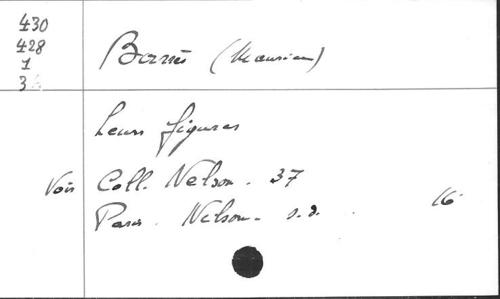 430
428
1
3
Barrès (Maurice)
Leurs figures
Voir Coll. Nelson. 37
Paris. Nelson. s.d. 16